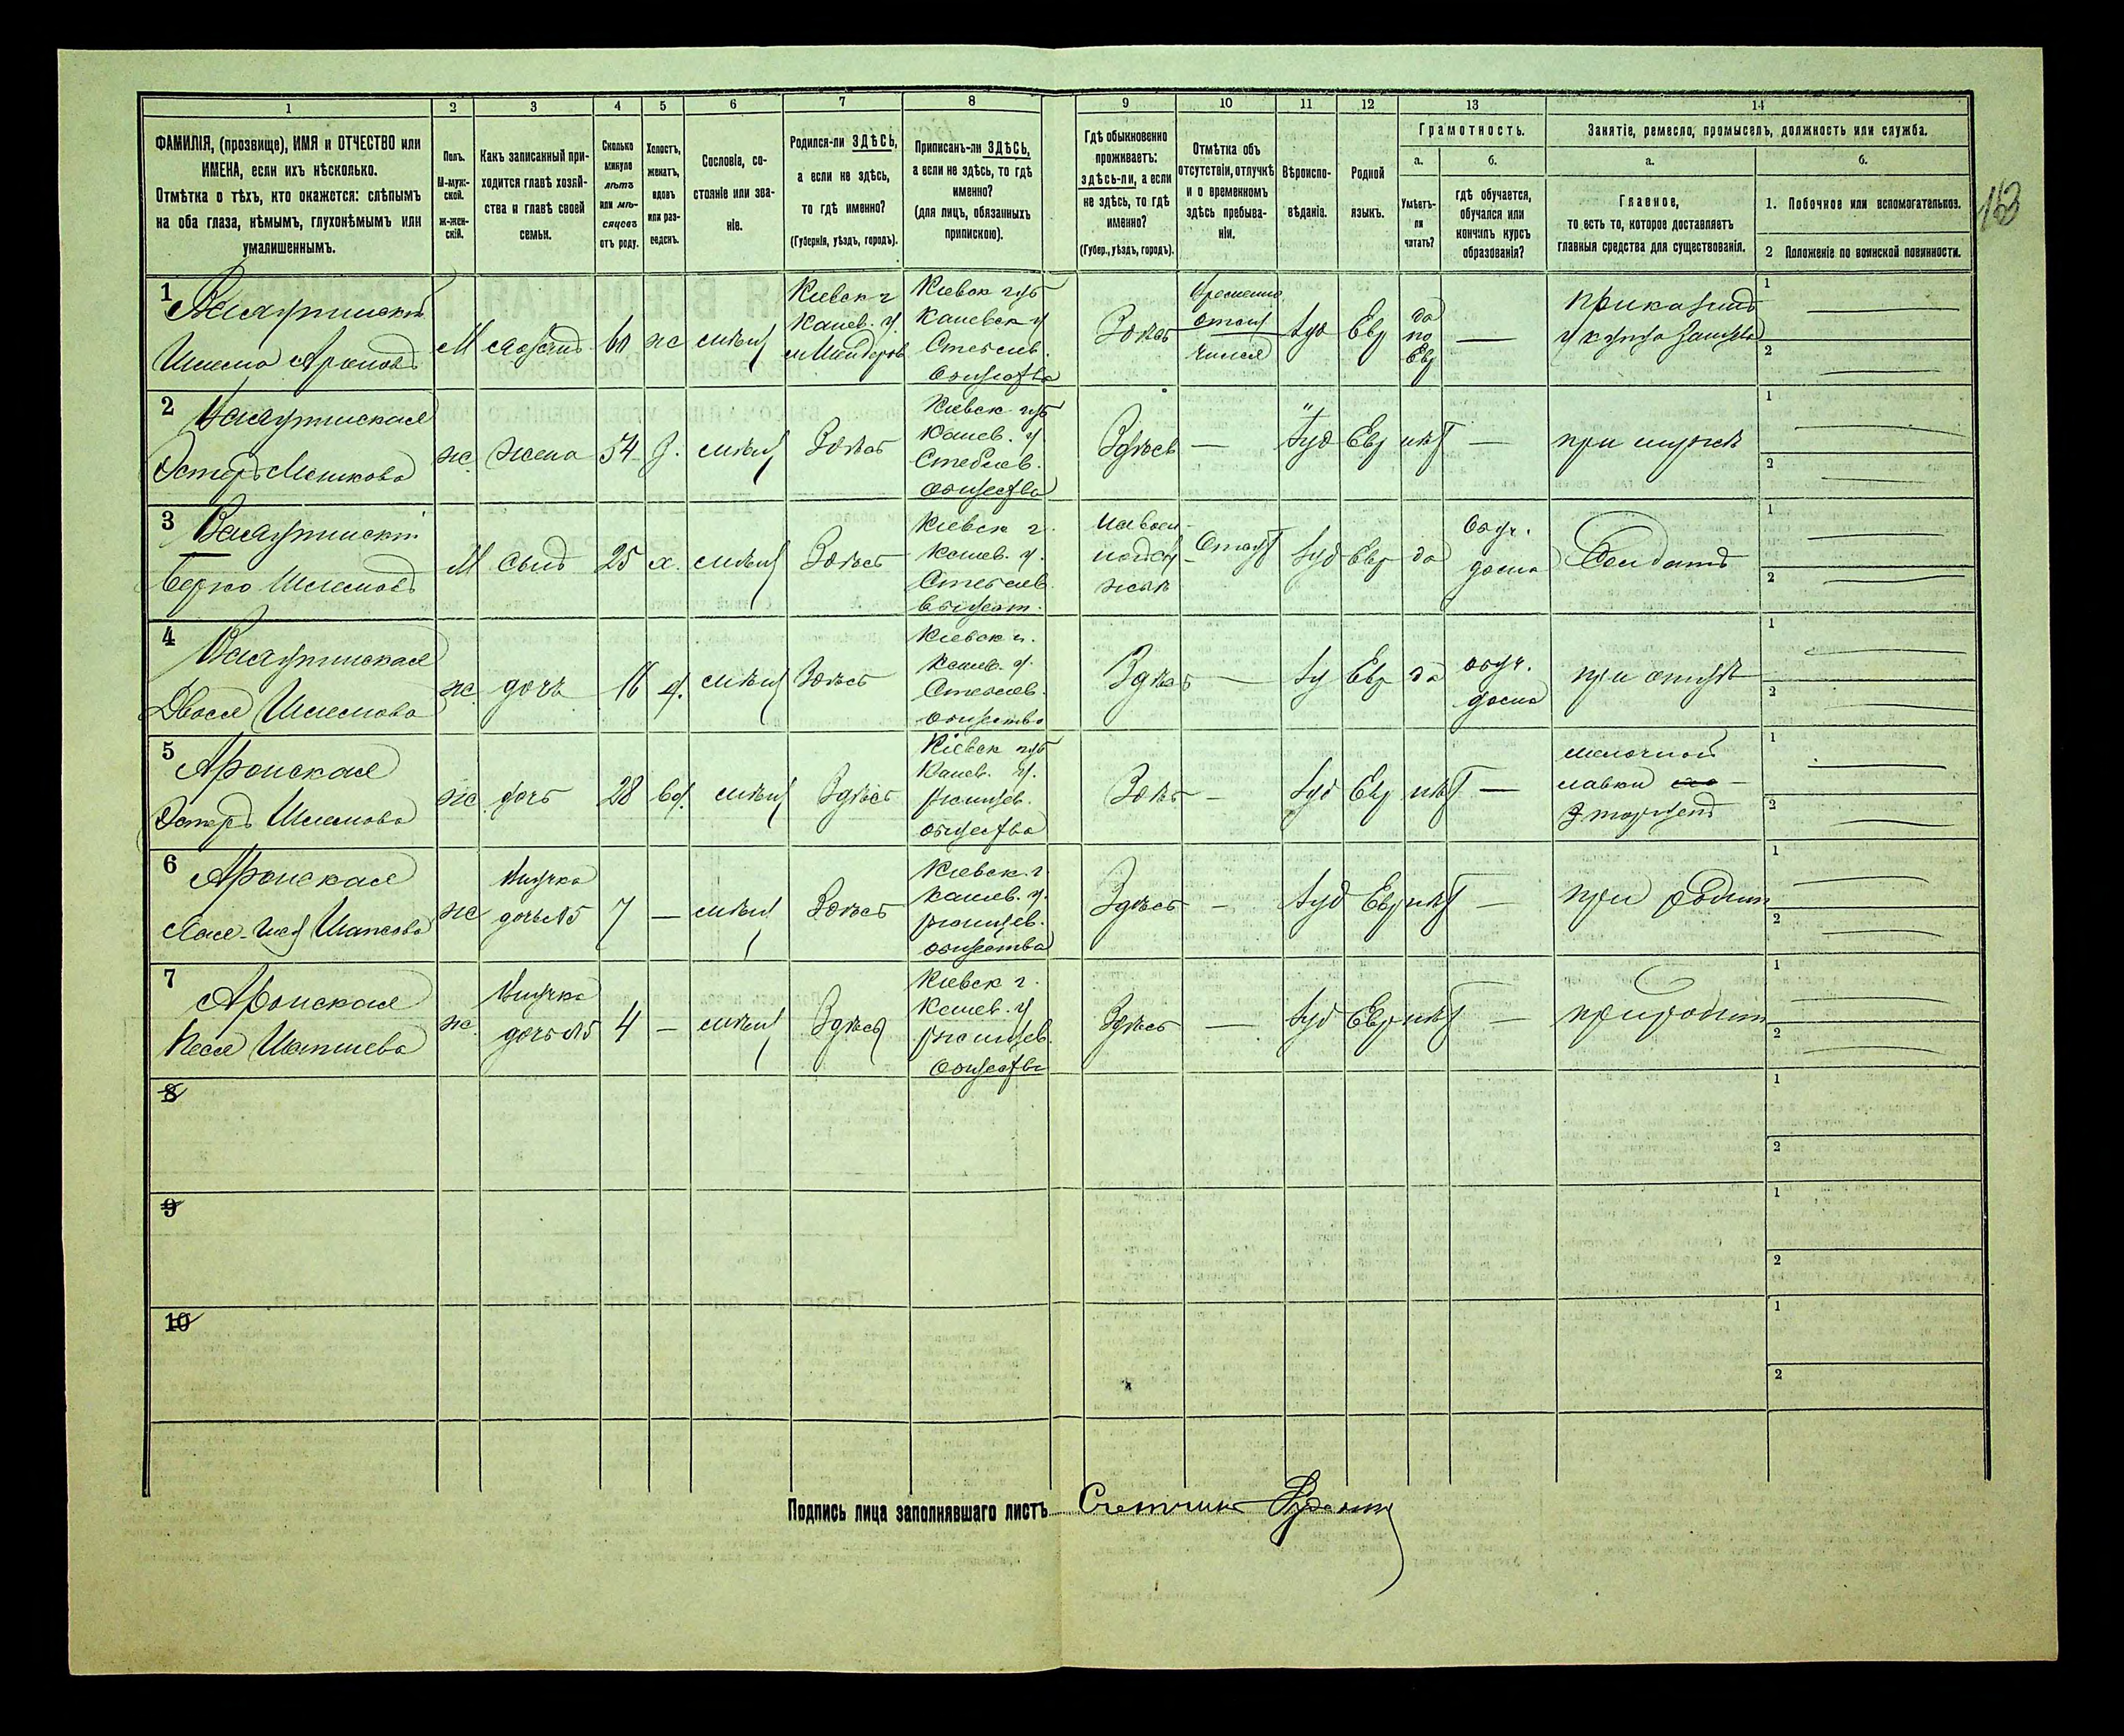 1 2 3 4 5 6 7 8 9 10 11 12 13 14
ФАМИЛІЯ, (прозвище), ИМЯ и ОТЧЕСТВО или
ИМЕНА, если ихъ нѣсколько.
Отмѣтка о тѣхъ, кто окажется: слѣпымъ
на оба глаза, нѣмымъ, глухонѣмымъ или
умалишеннымъ.
Полъ.
М-муж-
ской.
ж-жен-
скій.
Какъ записанный при-
ходится главѣ хозяй-
ства и главѣ своей
семьи.
Сколько
минуло
лѣтъ
или мѣ-
сяцевъ
отъ роду.
Холостъ,
женатъ,
вдовъ
или раз-
веденъ.
Сословіе, со-
стояніе или зва-
ніе.
Родился-ли ЗДѢСЬ,
а если не здѣсь,
то гдѣ именно?
(Губернія, уѣздъ, городъ).
Приписанъ-ли ЗДѢСЬ,
а если не здѣсь, то гдѣ
именно?
(для лицъ, обязанныхъ
припискою).
Гдѣ обыкновенно
проживаетъ:
здѣсь-ли, а если
не здѣсь, то гдѣ
именно?
(Губер., уѣздъ, городъ).
Отмѣтка объ
отсутствіи, отлучкѣ
и о временномъ
здѣсь пребыва-
ніи.
Вѣроиспо-
вѣданіе.
Родной
языкъ.
Грамотность.
а.
Умѣетъ-
ли
читать?
б.
гдѣ обучается,
обучался или
кончилъ курсъ
образованія?
Занятіе, ремесло, промыселъ, должность или служба.
а.
Главное,
то есть то, которое доставляетъ
главныя средства для существованія.
б.
1. Побочное или вспомогательное.
2 Положеніе по воинской повинности.
163
1
Шлема Ароновъ
М
60
ж
мѣщ
Кіевск г
Канев. у.
Кіевск губ
Каневск у
Стеблев.
Общества
Здѣсь
Временно
отлу
чился
Іуд
Евр
да
по
Евр
—
1
2
2
Эстеръ
ж.
жена
54
з.
мѣщ
Здѣсь
Кіевск губ
Канев. у.
Стеблев.
общества
Здѣсь
—
Іуд
Евр
нѣт
—
при мужѣ
1
2
3
Берко Шлемовъ
М
сынъ
25
х.
мѣщ
Здѣсь
Кіевск г.
Канев. у.
Стеблев.
Отлуч
Іуд
Евр
да
обуч.
дома
Солдатъ
1
2
4
Двося Шлемова
ж.
дочь
16
д.
мѣщ
Здѣсь
Кіевск г.
Канев. у.
Стеблев.
общество
Здѣсь
—
Іуд
Евр
да
обуч.
дома
при отцѣ
1
2
5
Аронская
Эстеръ Шлемова
ж
дочь
28
вд.
мѣщ
Здѣсь
Кіевск губ
Канев. у.
общества
Здѣсь
—
Іуд
Евр
нѣт
—
мелочной
лавки
1
2
6
Аронская
ж
Внучка
дочь №5
7
—
мѣщ
Здѣсь
Кіевск г.
Канев. у.
общества
Здѣсь
—
Іуд
Евр
нѣт
—
при родит
1
2
7
Аронская
Песя
ж.
Внучка
дочь №5
4
—
мѣщ
Здѣсь
Кіевск г.
Канев. у
общества
Здѣсь
—
Іуд
Евр
нѣт
—
при родит
1
2
8
1
2
9
1
2
10
1
2
Подпись лица заполнявшаго листъ
Счетчикъ